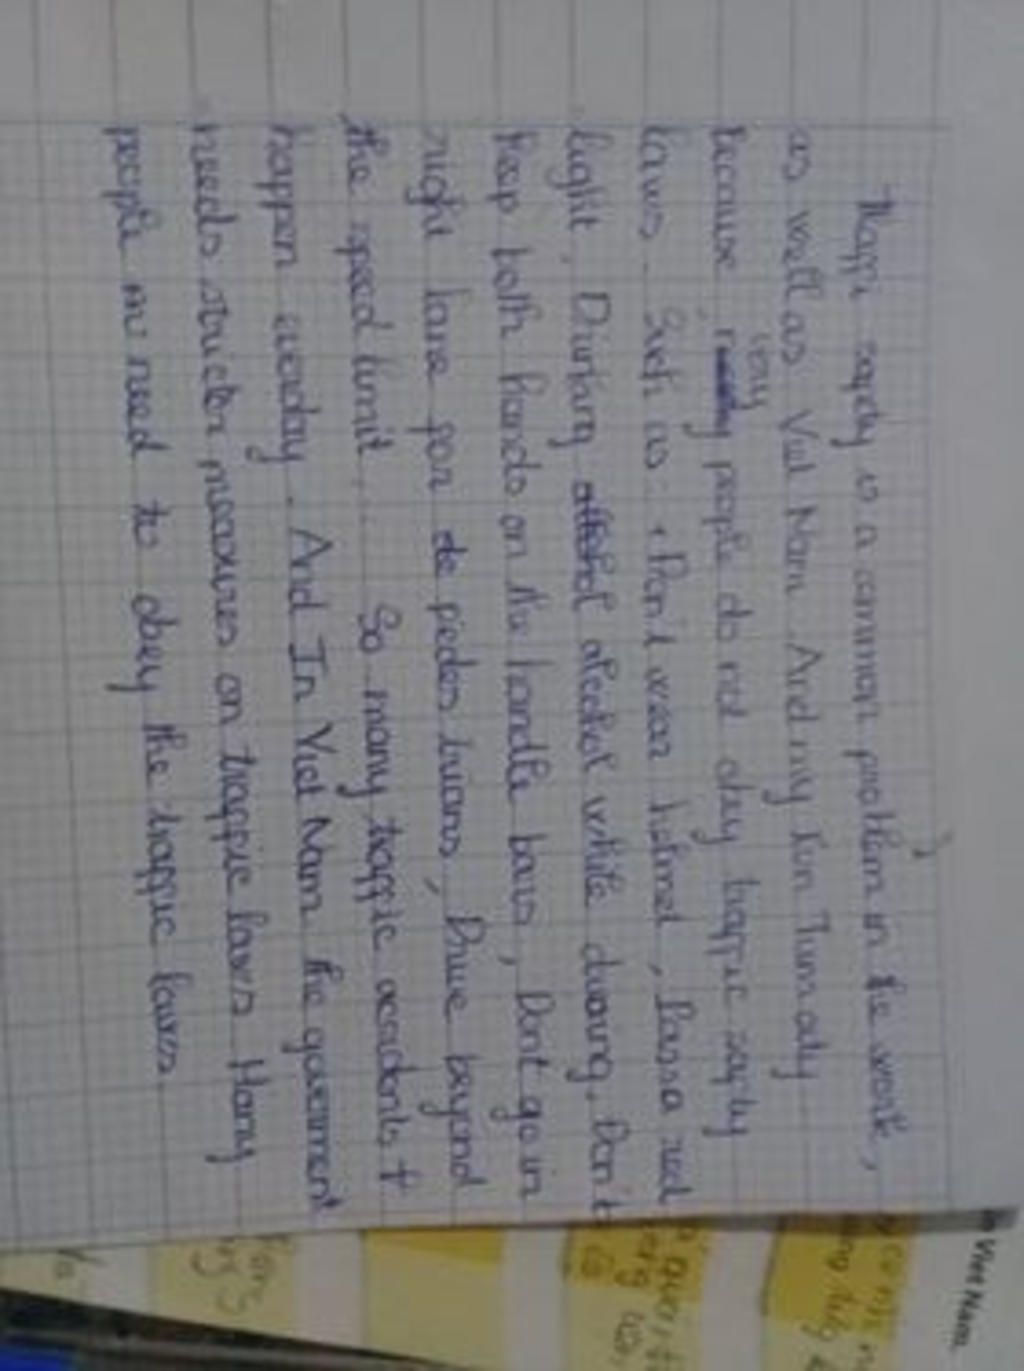 Traffic safety is a common problem in the world,
as well as Viet Nam. And my
because very people do not obey traffic safety
laws. Such as: Don't wear helmet, Pass a red
light, Drinking alcohol while driving, Don't
keep both hands on the handle bars, Dont go in
right lane for pedestrians, Drive beyond
the speed limit,... So many traffic accidents
happen everday. And In Viet Nam the goverment
needs stricter measures on traffic laws Many
people need to obey the traffic laws
Viet Nam.